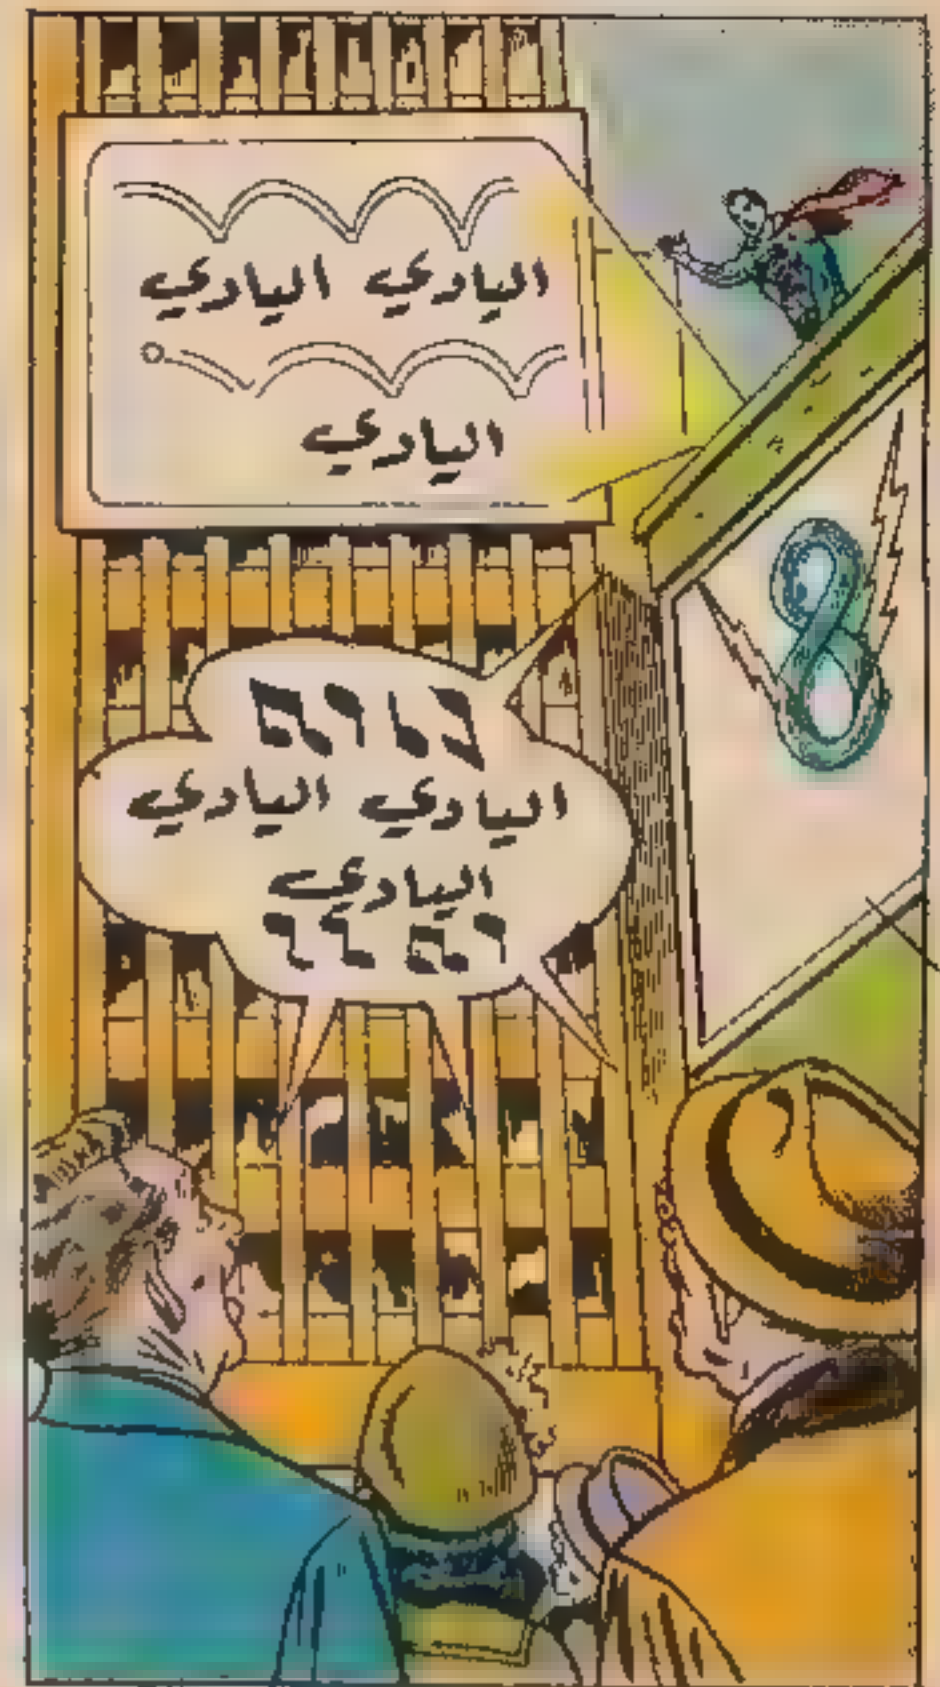 اليادي اليادي
اليادي
اليادي اليادي
اليادي